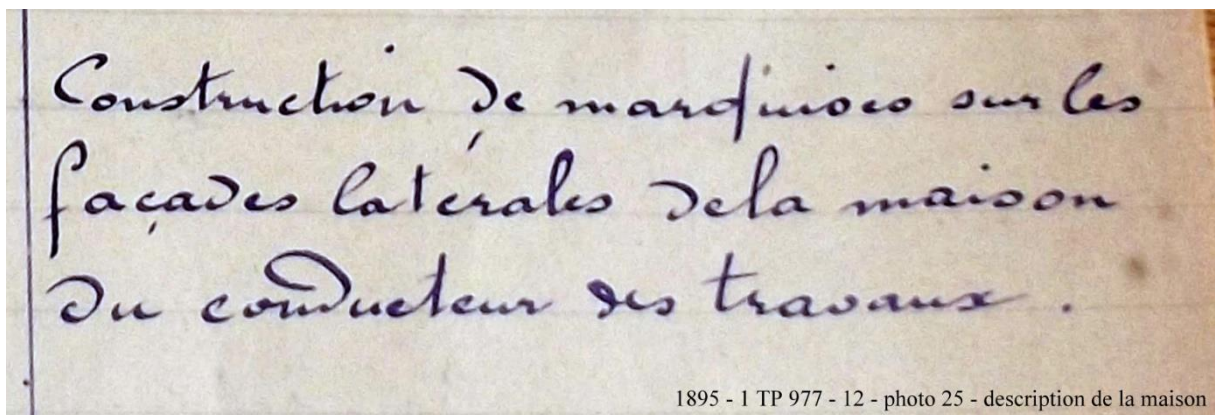 Construction de marquises sur les
façades latérales de la maison
du conducteur des travaux.
1895 - 1 TP 977 - 12 - photo 25 - description de la maison